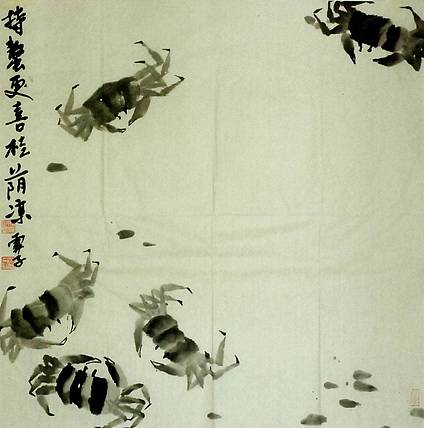 持螯更喜桂荫凉